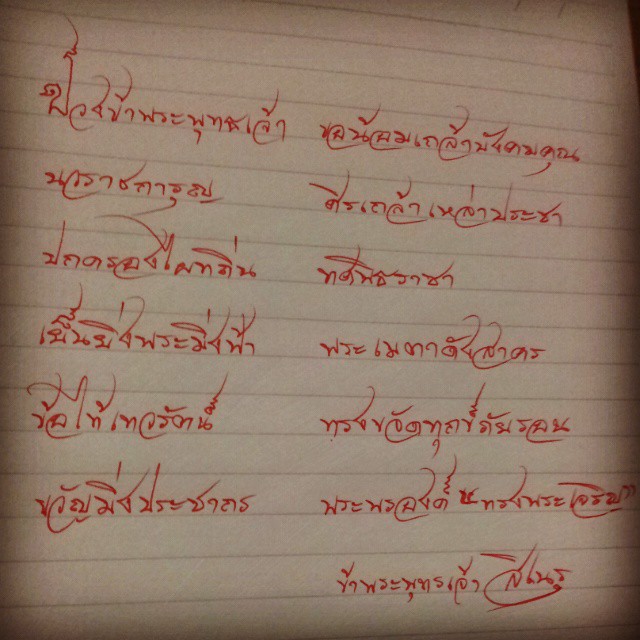 ปวงข้าพระพุทธเจ้า ขอน้อมเกล้าบังคมคุณ
นวราชการุญ ศิรเกล้าเหล่าประชา
ปกครองไผทถิ่น ทศพิธราชา
เย็นยิ่งพระมิ่งฟ้า พระเมตาดังสาคร
ข้อไท้เทวรัตน์ ทรงขจัดทุกข์ภัยรอน
ขวัญมิ่งประชากร พระพรองค์ ทรงพระเจริญ
ข้าพระพุทธเจ้า